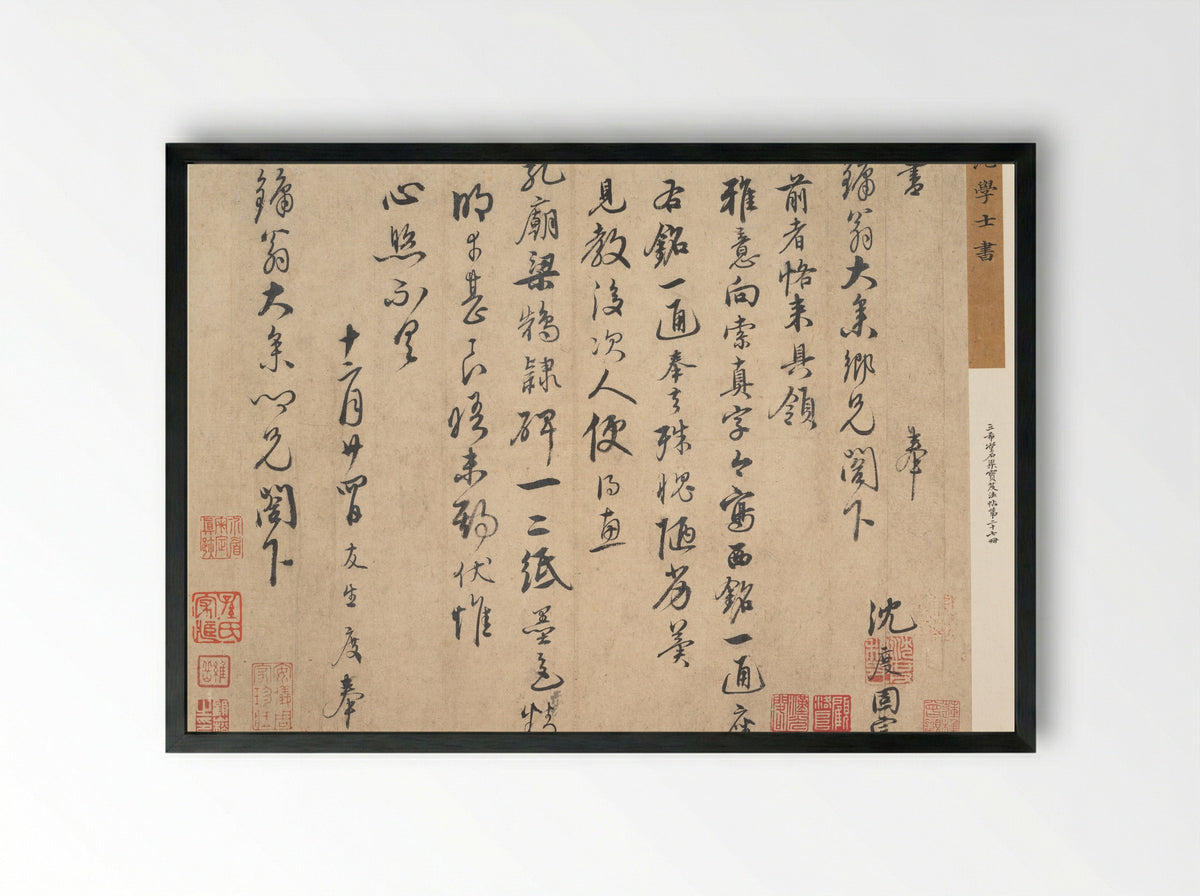 學士書
三希堂石渠寶笈法帖第二十七冊
書 奉
鏞翁大叅鄉兄閣下
沈度固
前者恪来具領
雅意向索真字今寫西銘一通座
右銘一通奉去殊愧陋劣冀
見教後次人便得惠
孔廟梁鵠隸碑一二紙墨色精
明者甚良晤未期伏惟
心照不具
十二月廿四日友生度奉
鏞翁大叅鄉兄閣下
安儀周家珍藏